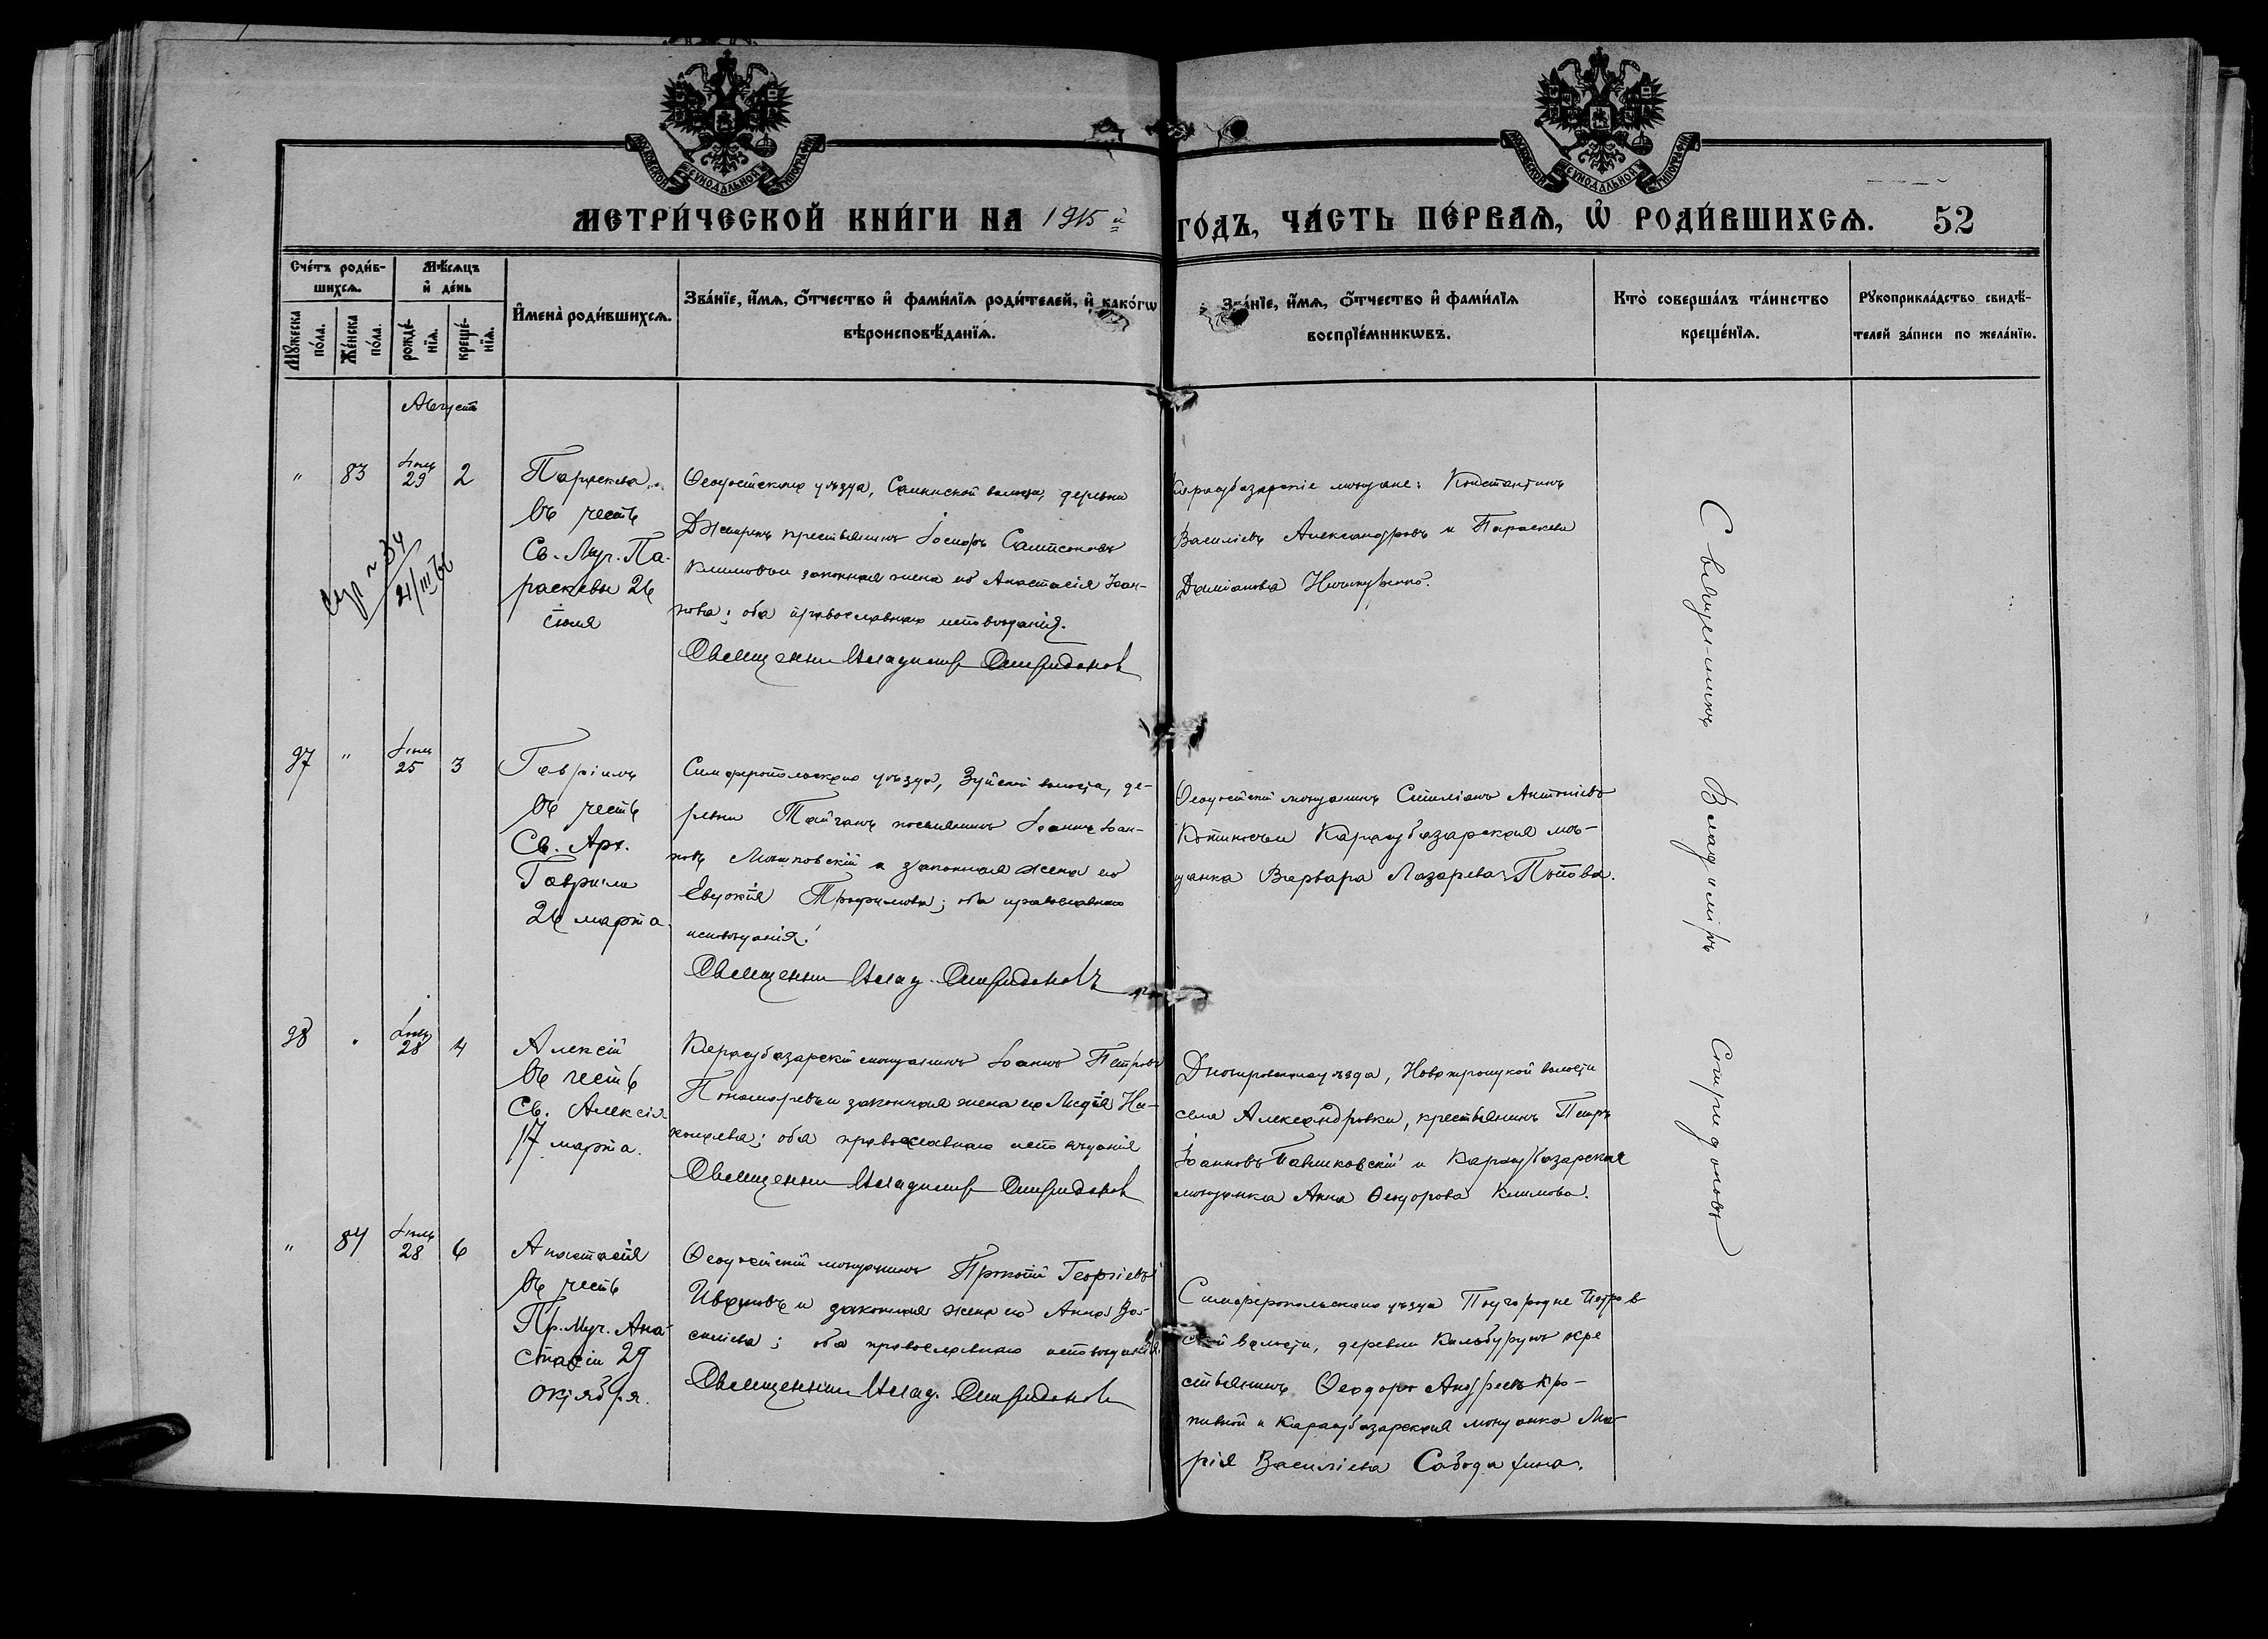 МОСКОВСКОЙ СѴНОДАЛЬНОЙ ТИПОГРАФІИ
МОСКОВСКОЙ СѴНОДАЛЬНОЙ ТИПОГРАФІИ
МЕТРИ́ЧЕСКОЙ КНИ́ГИ НА 1915й ГОДЪ, ЧА́СТЬ ПЕ́РВАѦ, Ѡ҆ РОДИ́ВШИХСѦ. 52
Сче́тъ роди́в-
шихсѧ.
Мꙋ́жеска по́ла.
Же́нска по́ла.
Мѣ́сѧцъ
и҆ де́нь
рожде́-
нїѧ.
креще́-
нїѧ.
И҆мена̀ роди́вшихсѧ.
Зва́нїе, и҆́мѧ, ѻ҆́тчество и҆ фами́лїѧ роди́телей, и҆ како́гѡ
вѣроисповѣ́данїѧ.
Зва́нїе, и҆́мѧ, ѻ҆́тчество и҆ фами́лїѧ
воспрїе́мникѡвъ.
Кто̀ соверша́лъ та́инство
креще́нїѧ.
Рꙋкоприкла́дство свидѣ́-
телей за́писи по жела́нїю.
Августъ
" 83 Іюль 29 2
Параскева
въ честь
Св. Муч. Па-
раскевы 26
іюля
№ 34
21/III
Ѳеодосійскаго уѣзда, волости, деревни
крестьянинъ Іосифъ Сампсоновъ
Климовъ и законная жена его Анастасія Іоан-
нова; оба православнаго исповѣданія.
Священник Владимир Спиридонов
Карасубазарскіе мѣщане: Константинъ
Василіевъ Александровъ и Параскева
Даміанова
97 " Іюль 25 3
Гавріилъ
въ честь
Св. Арх.
Гавріила
26 марта.
Симферопольскаго уѣзда, Зуйской волости, де-
ревни Тайганъ поселянинъ Іоаннъ Іоан-
новъ и законная жена его
Евдокія Трофимова; оба православнаго
исповѣданія.
Священник Влад. Спиридоновъ
Ѳеодосійскій мѣщанинъ Стиліанъ Антоніевъ
и Карасубазарская мѣ-
щанка Варвара Лазарева Попова.
98 " Іюль 28 4
Алексій
въ честь
Св. Алексія
17 марта.
Карасубазарскій мѣщанинъ Іоаннъ Петровъ
Пономаревъ и законная жена его Лидія Ни-
колаева; оба православнаго исповѣданія
Священник Владимир Спиридонов
Днѣпровскаго уѣзда, Новотроицкой волости
села Александровки, крестьянинъ Петръ
Іоанновъ Павликовскій и Карасубазарская
мѣщанка Анна Ѳеодорова Климова.
" 84 Іюль 28 6
Анастасія
въ честь
Пр. Муч. Ана-
стасіи 29
октября.
Ѳеодосійскій мѣщанинъ Прокопій Георгіевъ
Ивановъ и законная жена его Анна Ва-
силіева; оба православнаго исповѣданія.
Священник Влад. Спиридонов
Симферопольскаго уѣзда Подгородне Петров
ской волости, деревни Кильбурунъ кре
стьянинъ Ѳеодоръ Андреевъ Кро-
пивной и Карасубазарская мѣщанка Ма-
рія Василіева
Священникъ Владиміръ Спиридоновъ